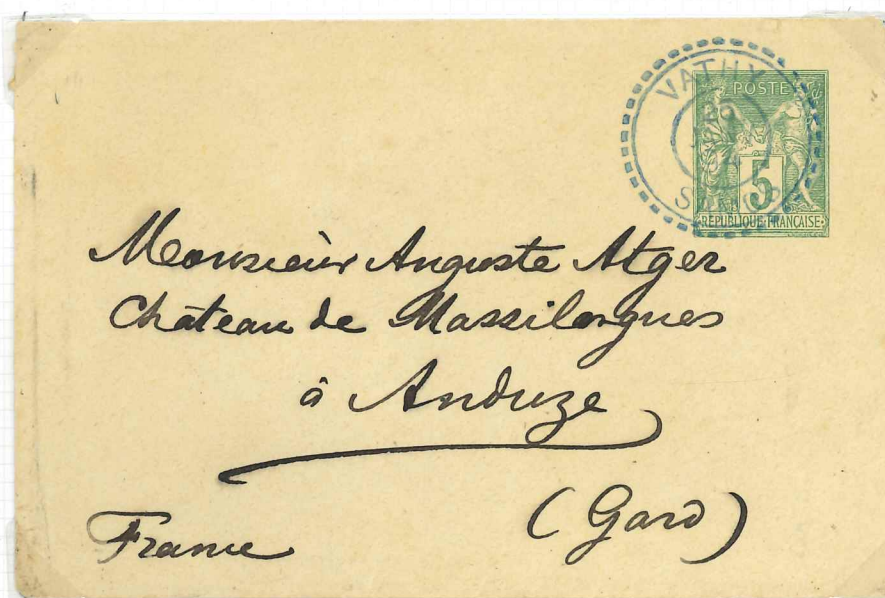 VATHY
SAMOS
POSTE
5
RÉPUBLIQUE FRANÇAISE
Monsieur Auguste Atger
Château de Massilargues
à Anduze
(Gard)
France